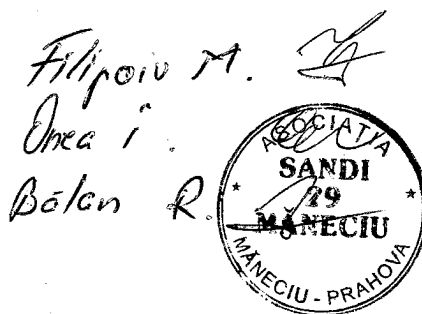 Filipoiu M.
Onea i.
Bălan R.
ASOCIAȚIA
SANDI
79
MĂNECIU
MĂNECIU - PRAHOVA